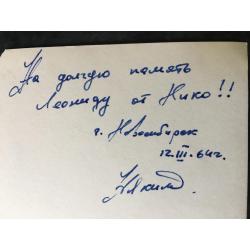 На долгую память
Леониду от Нико!!
г. Новосибирск
12.III.64г.